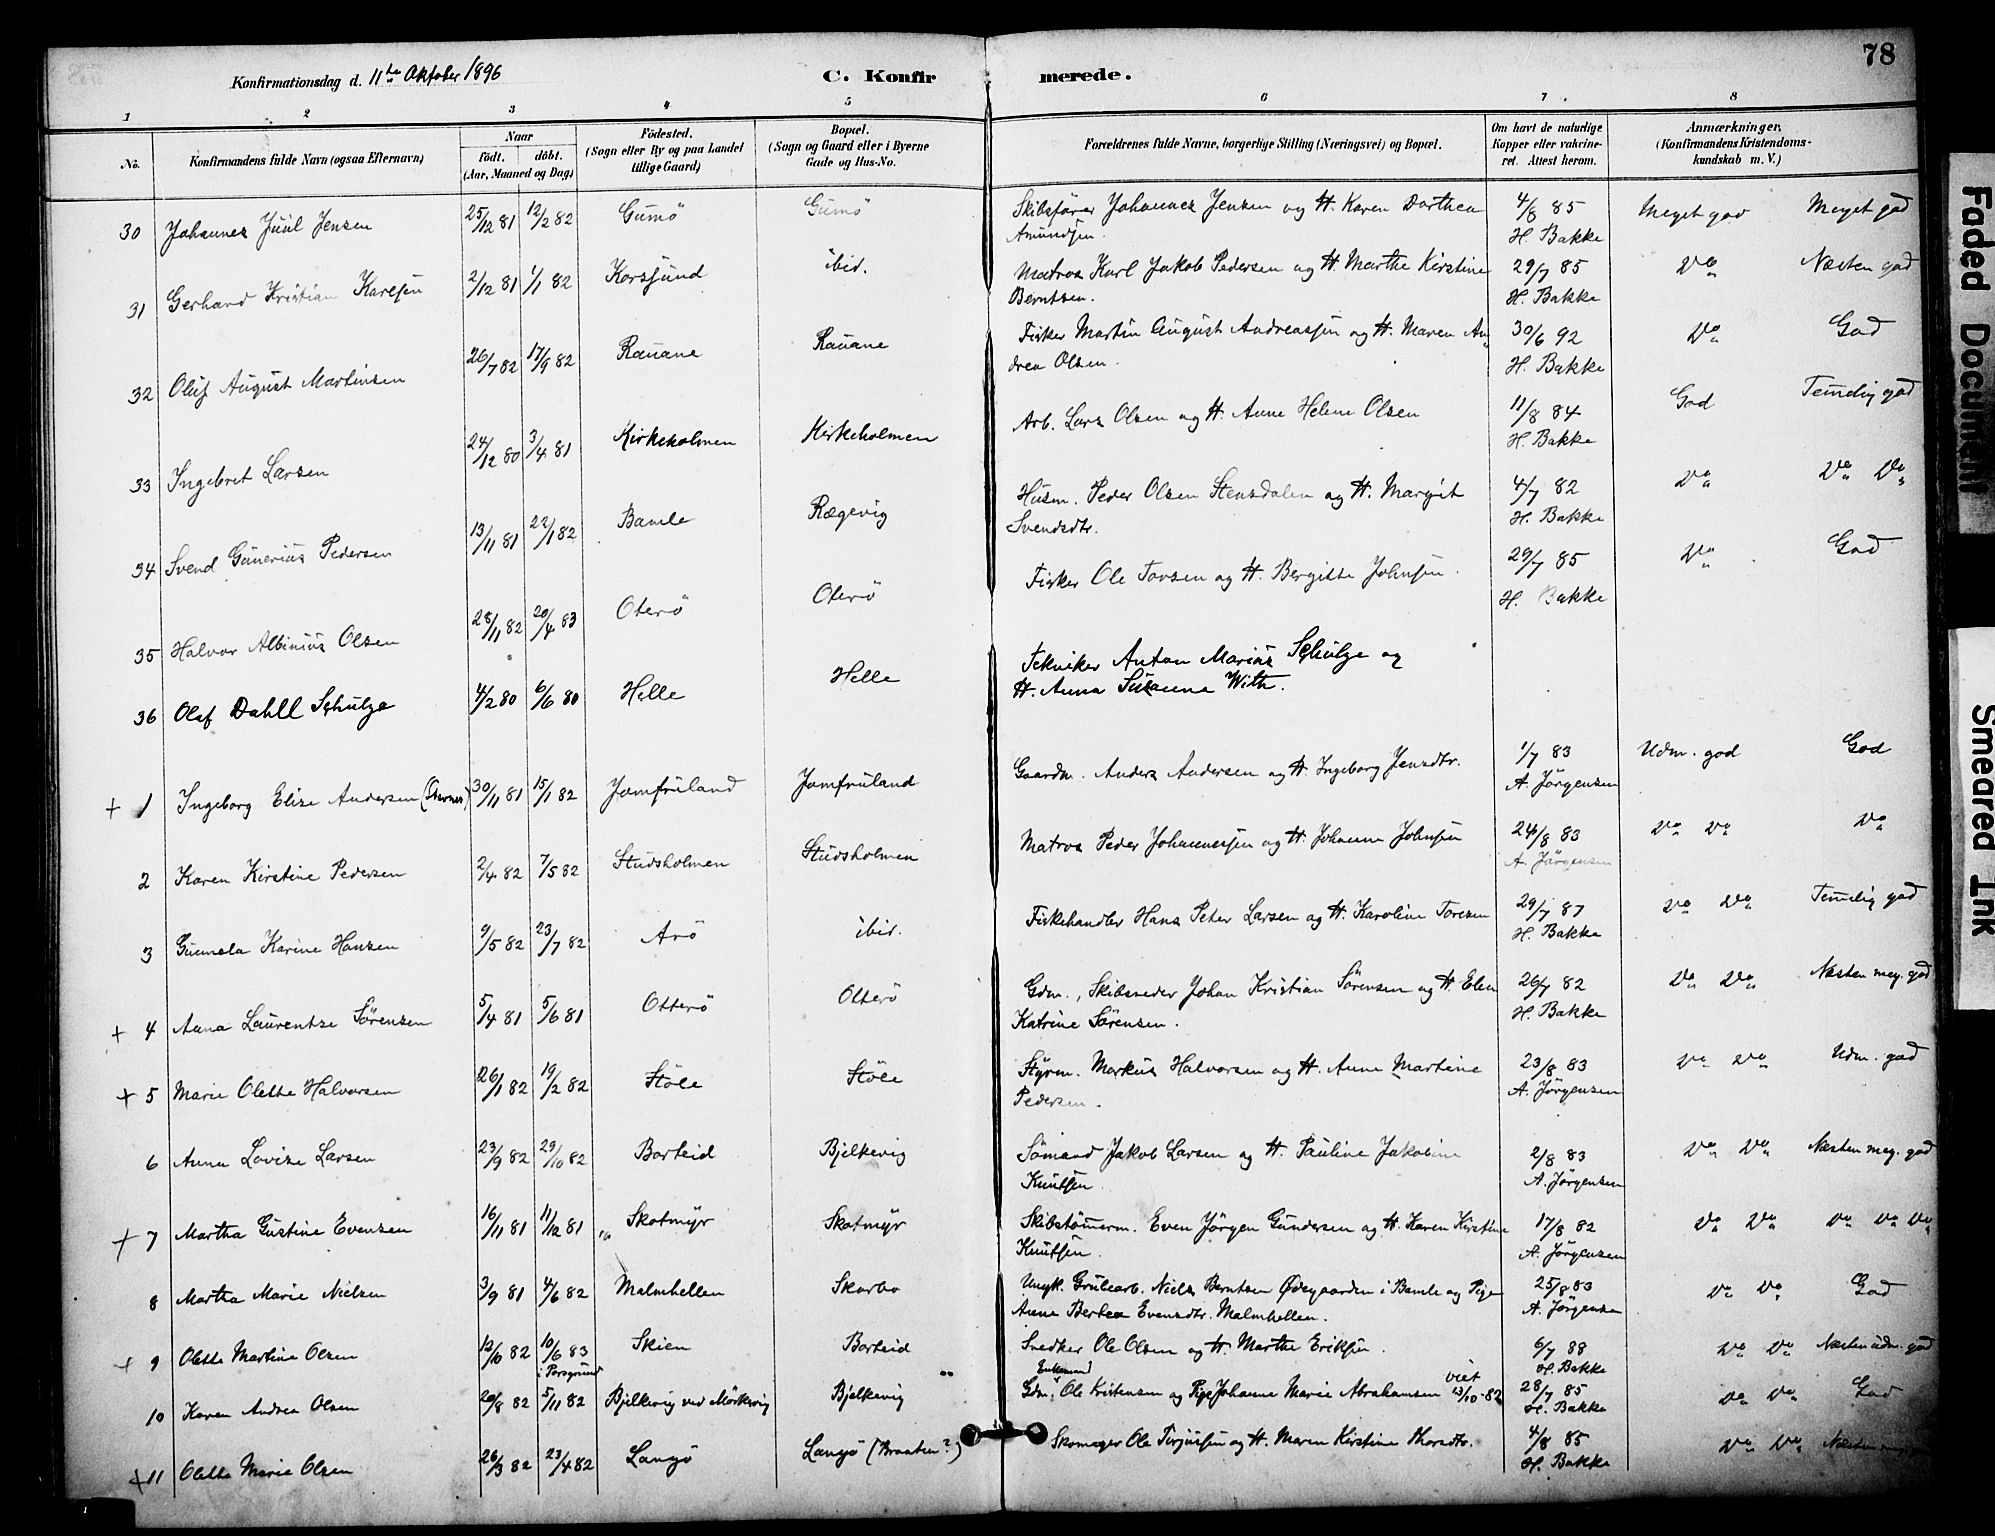 78
Konfirmationsdag d. 11te Oktober 1896 C. Konfirmerede.
1 2 3 4 5 6 7 8
No. Konfirmandens fulde Navn (ogsaa Efternavn) Naar födt. döbt. (Aar, Maaned og Dag) Födested. (Sogn eller By og paa Landet tillige Gaard) Bopæl. (Sogn og Gaard eller i Byerne Gade og Hus-No. Forældrenes fulde Navne, borgerlige Stilling (Næringsvei) og Bopæl. Om havt de naturlige Kopper eller vakcineret. Attest herom. Anmærkninger, (Konfirmandens Kristendomskundskab m. V.)
30 Johannes Juul Jensen 25/12 81 12/2 82 Gumö Gumö Skibsförer Johannes Jensen og H. Karen Dorthea Amundsen. 4/8 85 H. Bakke Meget god Meget god
31 Gerhard Kristian Karlsen 2/12 81 1/1 82 Korssund ibid. Matros Karl Jakob Pedersen og H. Marthe Kirstine Berntsen. 29/7 85 H. Bakke Do Næsten god
32 Oluf August Martinsen 26/7 82 17/9 82 Rauane Rauane Fisker Martin August Andreassen og H. Maren Andrea Olsen. 30/6 92 H. Bakke Do God
33 Ingebret Larsen 24/12 80 3/4 81 Kirkeholmen Kirkeholmen Arb. Lars Olsen og H. Anne Helene Olsen 11/8 84 H. Bakke God Temelig god
34 Svend Gunerius Pedersen 13/11 81 22/1 82 Bamle Rægevig Husm. Peder Olsen Stensdalen og H. Margit Svendsdtr. 4/7 82 H. Bakke Do Do Do
35 Halvor Albinius Olsen 28/11 82 20/4 83 Oterö Oterö Fisker Ole Tovsen og H. Bergitte Johnsen. 29/7 85 H. Bakke Do God
36 Olaf Dahll Schulze 4/2 80 6/6 80 Helle Helle Tekniker Anton Marius Schulze og H. Anna Susanne With.
+ 1 Ingeborg Elise Andersen (Stavnes) 30/11 81 15/1 82 Jomfruland Jomfruland Gaardm. Anders Andersen og H. Ingeborg Jensdtr. 1/7 83 A. Jörgensen Udm. god God
2 Karen Kirstine Pedersen 2/4 82 7/5 82 Studsholmen Studsholmen Matros Peder Johannessen og H. Johanne Johnsen 24/8 83 A. Jörgensen Do Do Do
3 Gunnela Karine Hansen 9/5 82 23/7 82 Arö ibid. Fiskehandler Hans Peter Larsen og H. Karoline Toresen 29/7 87 H. Bakke Do Do Temelig god
+ 4 Anna Laurentze Sörensen 5/4 81 5/6 81 Otterö Olterö Gdm., Skibsreder Johan Kristian Sörensen og H. Elen Katrine Sörensen. 26/7 82 H. Bakke Do Do Næsten meg. god
+ 5 Marie Olette Halvorsen 26/1 82 19/2 82 Stöle Stöle Styrm. Markus Halvorsen og H. Anne Martine Pedersen. 23/8 83 A. Jörgensen Do Do Udm. god
6 Anna Lovise Larsen 23/9 82 29/10 82 Borteid Bjelkevig Sömand Jakob Larsen og H. Pauline Jakobine Knutsen. 2/8 83 A. Jörgensen Do Do Næsten meg. god
+ 7 Martha Gustine Evensen 16/11 81 11/12 81 Skotmyr Skotmyr Skibstömerm. Even Jörgen Gundersen og H. Karen Kirstine Knutsen. 17/8 82 A. Jörgensen Do Do Do Do Do
8 Martha Marie Nielsen 3/9 81 4/6 82 Malmhellen Skarbo Ungk. Grubearb. Niels Berntsen Ødegaarden i Bamle og Pige Anne Bertea Evensdtr. Malmhellen. 25/8 83 A. Jörgensen Do Do God
+ 9 Olette Martine Olsen 12/10 82 10/6 83 i Porsgrund Skien Borteid Snedker Ole Olsen og H. Marthe Eriksen. 6/7 88 H. Bakke Do Do Næsten udm. god
10 Karen Andrea Olsen 20/8 82 5/11 82 Bjelkevig ved Mörkevig Bjelkevig Enkemand Gdm. Ole Kristensen og Pige Johanne Marie Abrahamsen viet 13/10-82 28/7 85 H. Bakke Do Do God
+ 11 Olette Marie Olsen 26/3 82 23/4 82 Langö Langö (Braaten?) Skomager Ole Terjusen og H. Maren Kirstine Thorsdtr. 4/8 85 H. Bakke Do Do Næsten
Faded Document
Smeared Ink